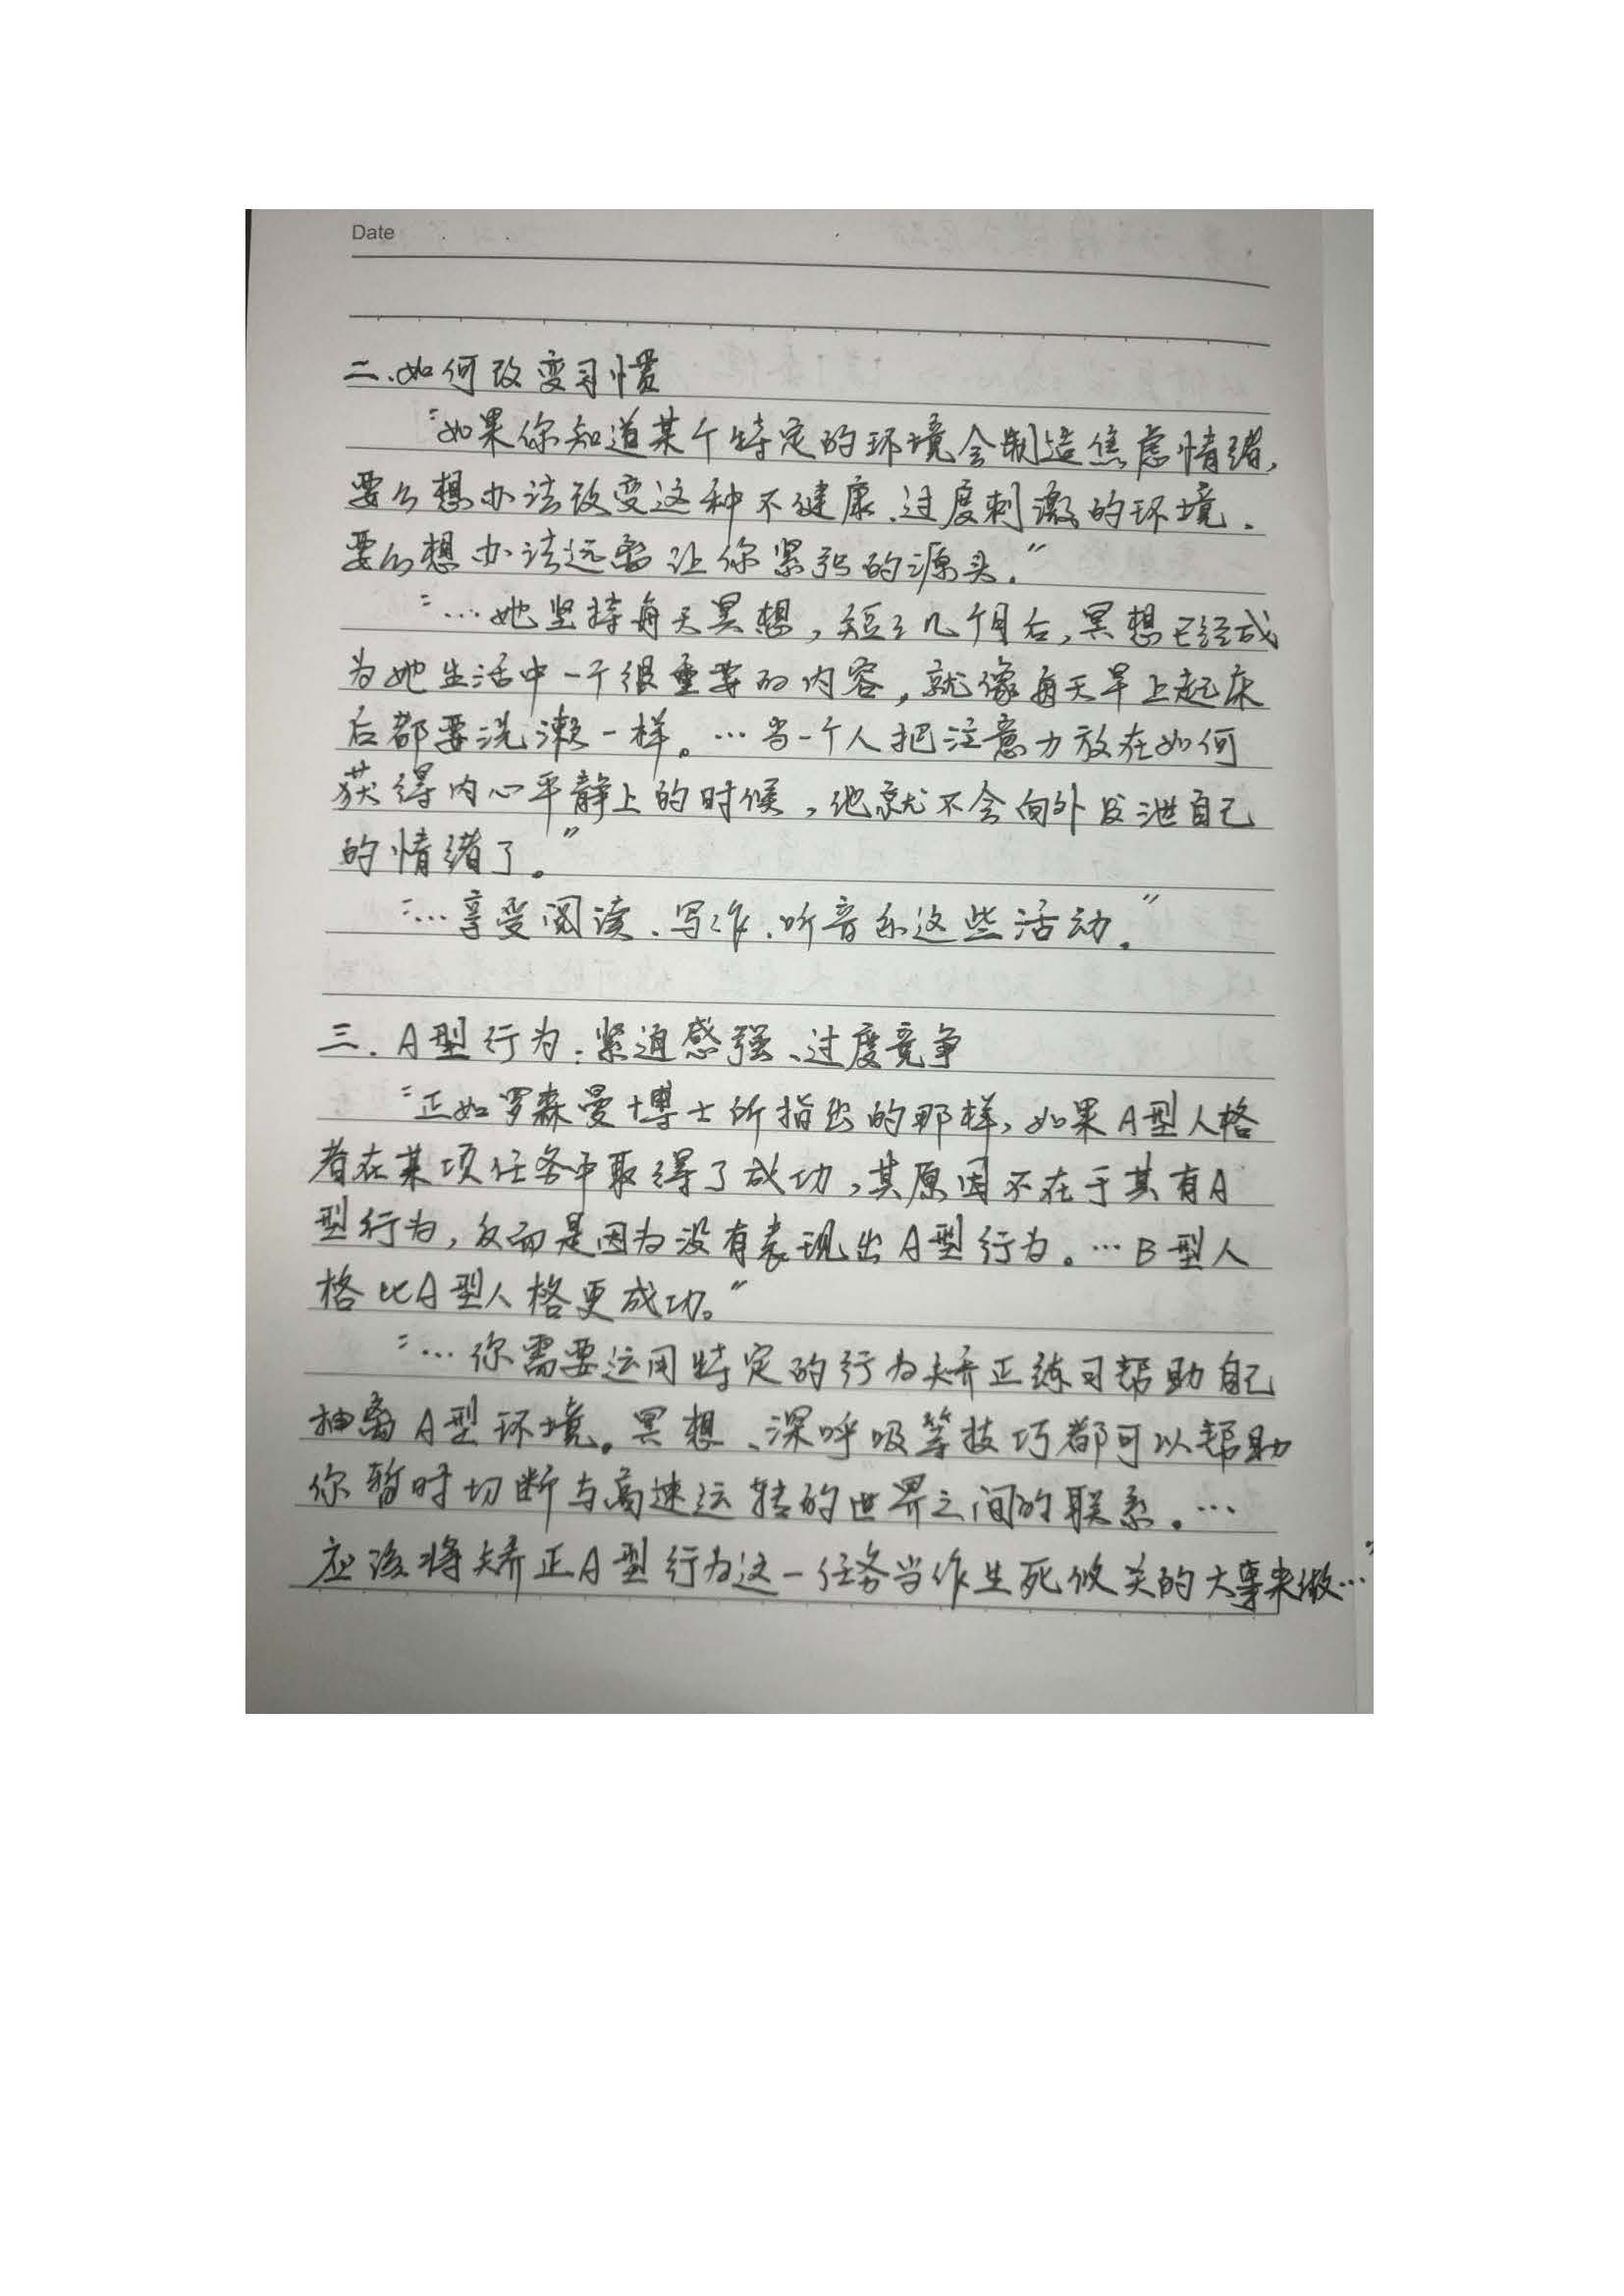 Date
二.如何改变习惯
“如果你知道某个特定的环境会制造焦虑情绪,
要么想办法改变这种不健康、过度刺激的环境.
要么想办法远离让你紧张的源头.”
“…她坚持每天冥想,短短几个月后,冥想已经成
为她生活中一个很重要的内容,就像每天早上起床
后都要洗漱一样。…当一个人把注意力放在如何
获得内心平静上的时候,他就不会向外发泄自己
的情绪了。”
“…享受阅读、写作、听音乐这些活动.”
三.A型行为:紧迫感强、过度竞争
“正如罗森曼博士所指出的那样,如果A型人格
者在某项任务中取得了成功,其原因不在于其有A
型行为,反而是因为没有表现出A型行为。…B型人
格比A型人格更成功。”
“…你需要运用特定的行为矫正练习帮助自己
抽离A型环境。冥想、深呼吸等技巧都可以帮助
你暂时切断与高速运转的世界之间的联系。…
应该将矫正A型行为这一任务当作生死攸关的大事来做…”